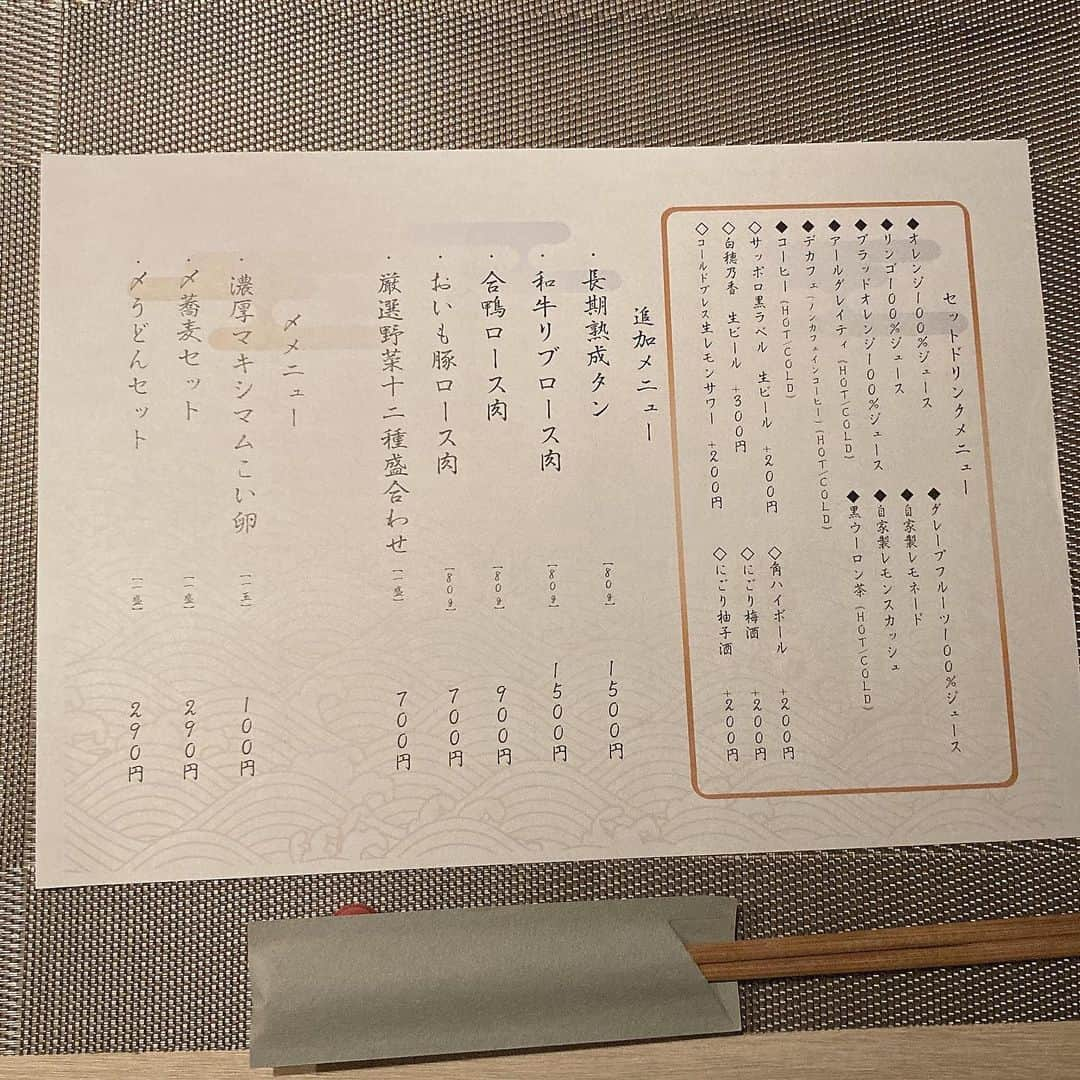 セットドリンクメニュー
◆オレンジ100％ジュース
◆リンゴ100％ジュース
◆ブラッドオレンジ100％ジュース
◆アールグレイティ(HOT/COLD)
◆デカフェ(ノンカフェインコーヒー)(HOT/COLD)
◆コーヒー(HOT/COLD)
◆グレープフルーツ100％ジュース
◆自家製レモネード
◆自家製レモンスカッシュ
◆黒ウーロン茶(HOT/COLD)
◇サッポロ黒ラベル 生ビール +200円
◇白穂乃香 生ビール +300円
◇コールドプレス生レモンサワー +200円
◇角ハイボール +200円
◇にごり梅酒 +200円
◇にごり柚子酒 +200円
追加メニュー
・長期熟成タン [80g] 1500円
・和牛リブロース肉 [80g] 1500円
・合鴨ロース肉 [80g] 900円
・おいも豚ロース肉 [80g] 700円
・厳選野菜十二種盛合わせ [一盛] 700円
〆メニュー
・濃厚マキシマムこい卵 [一玉] 100円
・〆蕎麦セット [一盛] 290円
・〆うどんセット [一盛] 290円